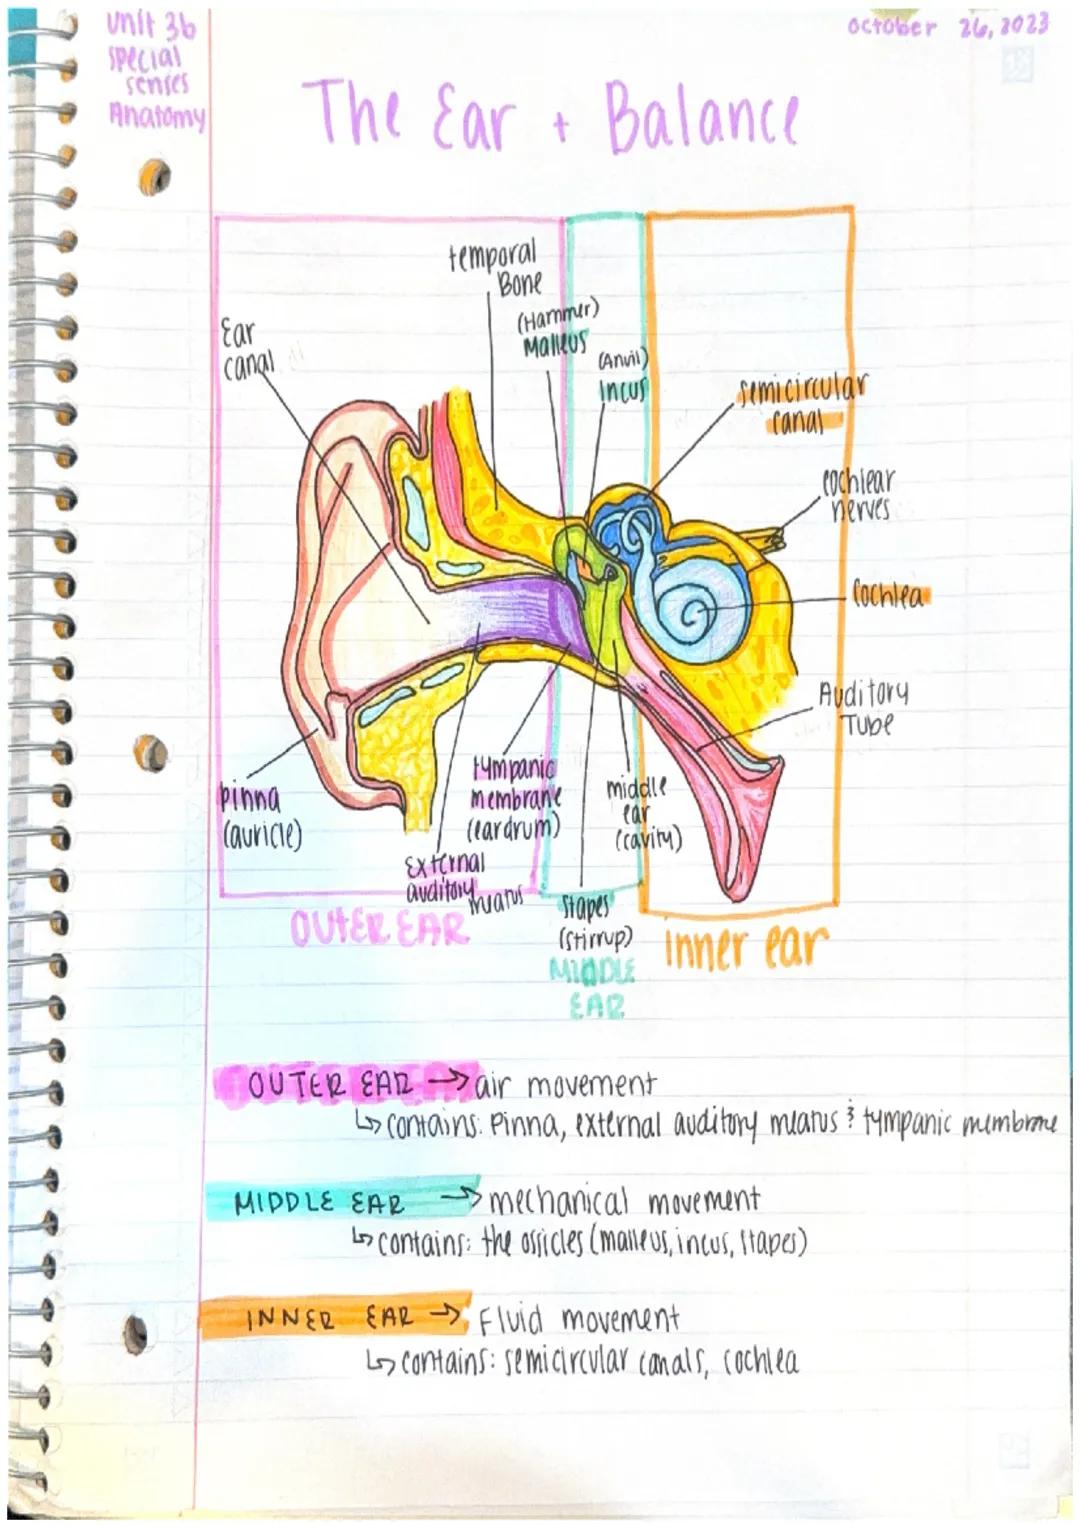 unit 3b
special
senses
Anatomy
October 26, 2023
The Ear + Balance
temporal
Bone
(Hammer)
Malleus
(Anvil)
Incus
Ear
canal
semicircular
canal
cochlear
nerves
Cochlea
Auditory
Tube
pinna
(auricle)
tympanic
membrane
(eardrum)
middle
ear
(cavity)
External
auditory
meatus
Stapes
(stirrup)
OUTER EAR
MIDDLE
EAR
inner ear
OUTER EAR → air movement
↳ contains: Pinna, external auditory meatus & tympanic membrane
MIDDLE EAR → mechanical movement
↳ contains: the ossicles (malleus, incus, stapes)
INNER EAR → Fluid movement
↳ contains: semicircular canals, cochlea